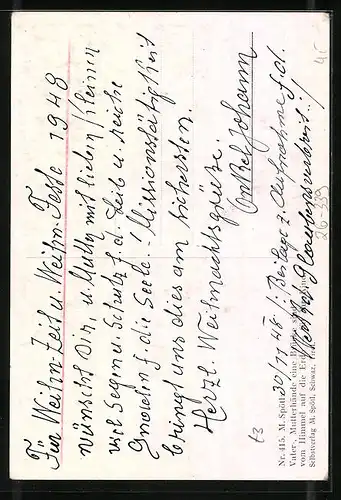 Für Weihn-Zeit u. Weihn-Feste 1948
wünscht Dir, u. Mutter mit lieben Kleinen
viel Segen u. Schutz f. d. Leib u. reiche
Gnaden f. die Seele. ! Missionstätigkeit
bringt uns dies am sichersten.
Herzl. Weihnachtsgrüße.
Onkel Johann
30/11 48 /: Beilage z. Aufnahme f. d.
Glaubens :/
26-339
t3
Nr. 415. M. Spötl
Vater-, Mutterhände eine Brücke
vom Himmel auf die Erde
Selbstverlag M. Spötl, Schwaz, Tirol